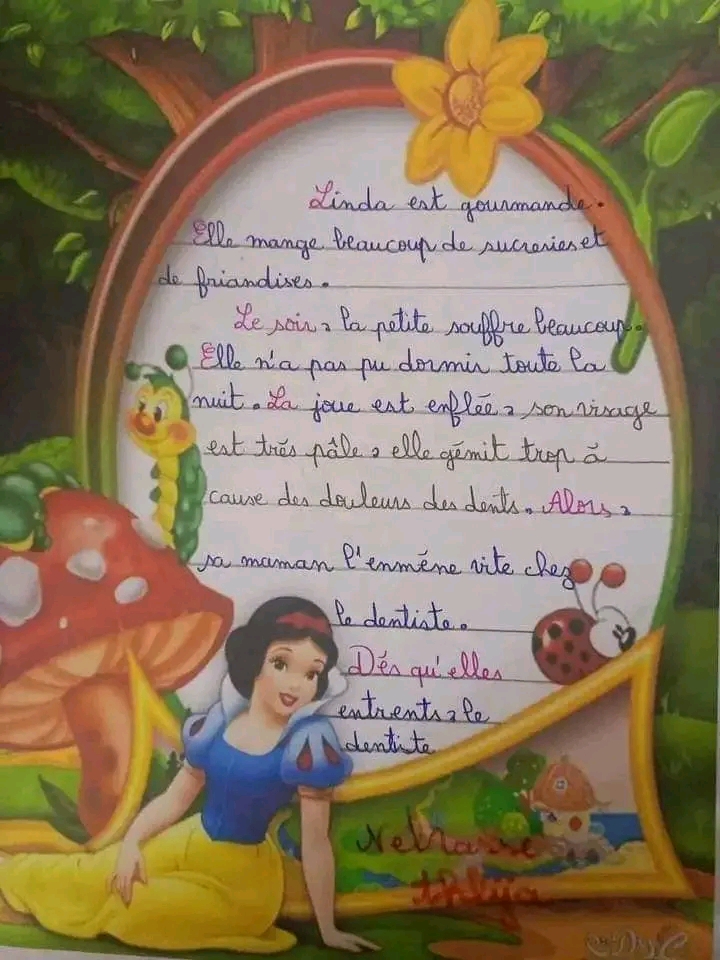 Linda est gourmande.
Elle mange beaucoup de sucreries et
de friandises.
Le soir, la petite souffre beaucoup.
Elle n'a pas pu dormir toute la
nuit. La joue est enflée, son visage
est trés pâle, elle gémit trop à
cause des douleurs des dents. Alors,
sa maman l'enméne vite chez
le dentiste.
Dés qu'elles
entrents, le
dentiste